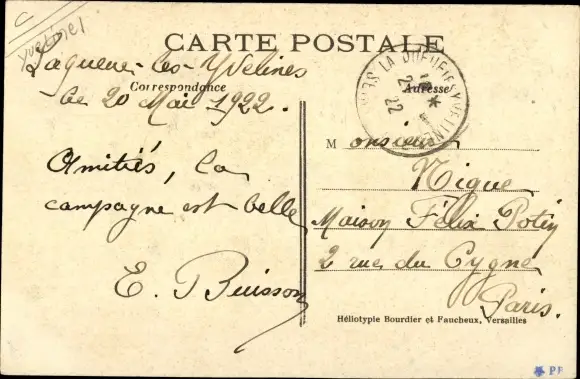 C
Yvelines
CARTE POSTALE
Laqueue-les-Yvelines
Correspondance
Adresse
le 20 Mai 1922.
LA QUEUE-LES-YVELINES
Amitiés, la
campagne est belle
E. Buisson
Monsieur
Nigue
Maison Félix Potin
2 rue du Cygne
Paris.
Héliotypie Bourdier et Faucheux, Versailles
PF